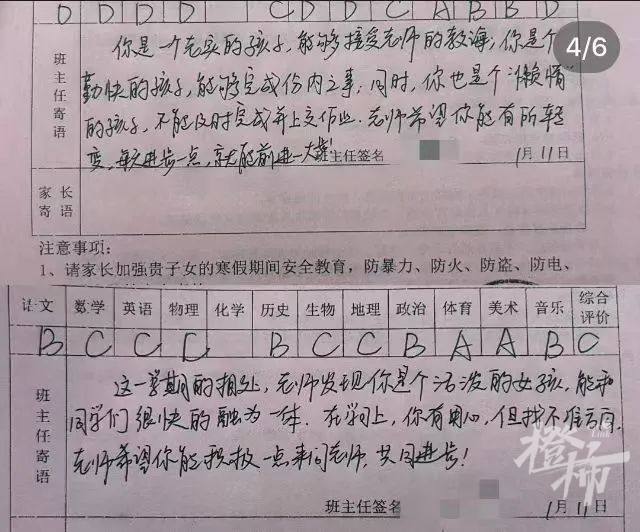 D D D D C D D C A B B D
4/6
班主任寄语
你是一个老实的孩子,能够接受老师的教诲;你是个
勤快的孩子,能够完成份内之事;同时,你也是个“懒惰”
的孩子,不能及时完成并上交作业.老师希望你能有所转
变,每天进步一点,就能前进一大步!
班主任签名 1月11日
家长寄语
注意事项:
1、请家长加强贵子女的寒假期间安全教育,防暴力、防火、防盗、防电、
语文 数学 英语 物理 化学 历史 生物 地理 政治 体育 美术 音乐 综合评价
B C C C B C C B A A B C
班主任寄语
这一学期的相处,老师发现你是个活泼的女孩,能和
同学们很快的融为一体.在学习上,你有用心,但找不准方向.
老师希望你能积极一点来问老师,共同进步!
橙柿
班主任签名 1月11日